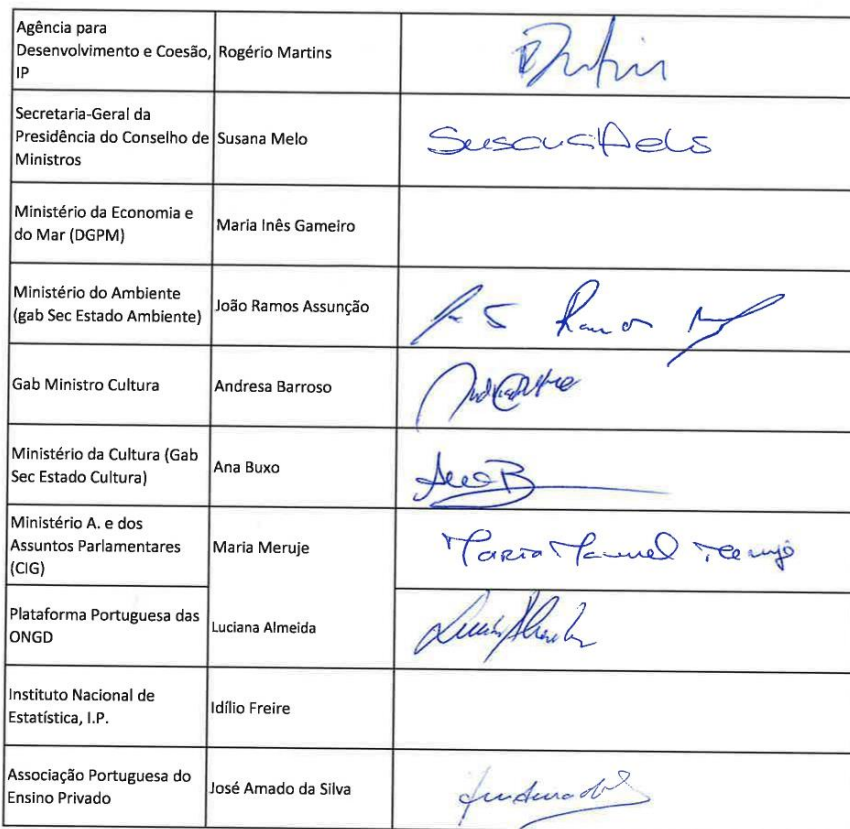 Agência para
Desenvolvimento e Coesão,
IP
Rogério Martins
Secretaria-Geral da
Presidência do Conselho de
Ministros
Susana Melo
Susana Melo
Ministério da Economia e
do Mar (DGPM)
Maria Inês Gameiro
Ministério do Ambiente
(gab Sec Estado Ambiente)
João Ramos Assunção
Ramos
Gab Ministro Cultura
Andresa Barroso
Ministério da Cultura (Gab
Sec Estado Cultura)
Ana Buxo
Ana B
Ministério A. e dos
Assuntos Parlamentares
(CIG)
Maria Meruje
Maria Manuel Meruje
Plataforma Portuguesa das
ONGD
Luciana Almeida
Luciana Almeida
Instituto Nacional de
Estatística, I.P.
Idílio Freire
Associação Portuguesa do
Ensino Privado
José Amado da Silva